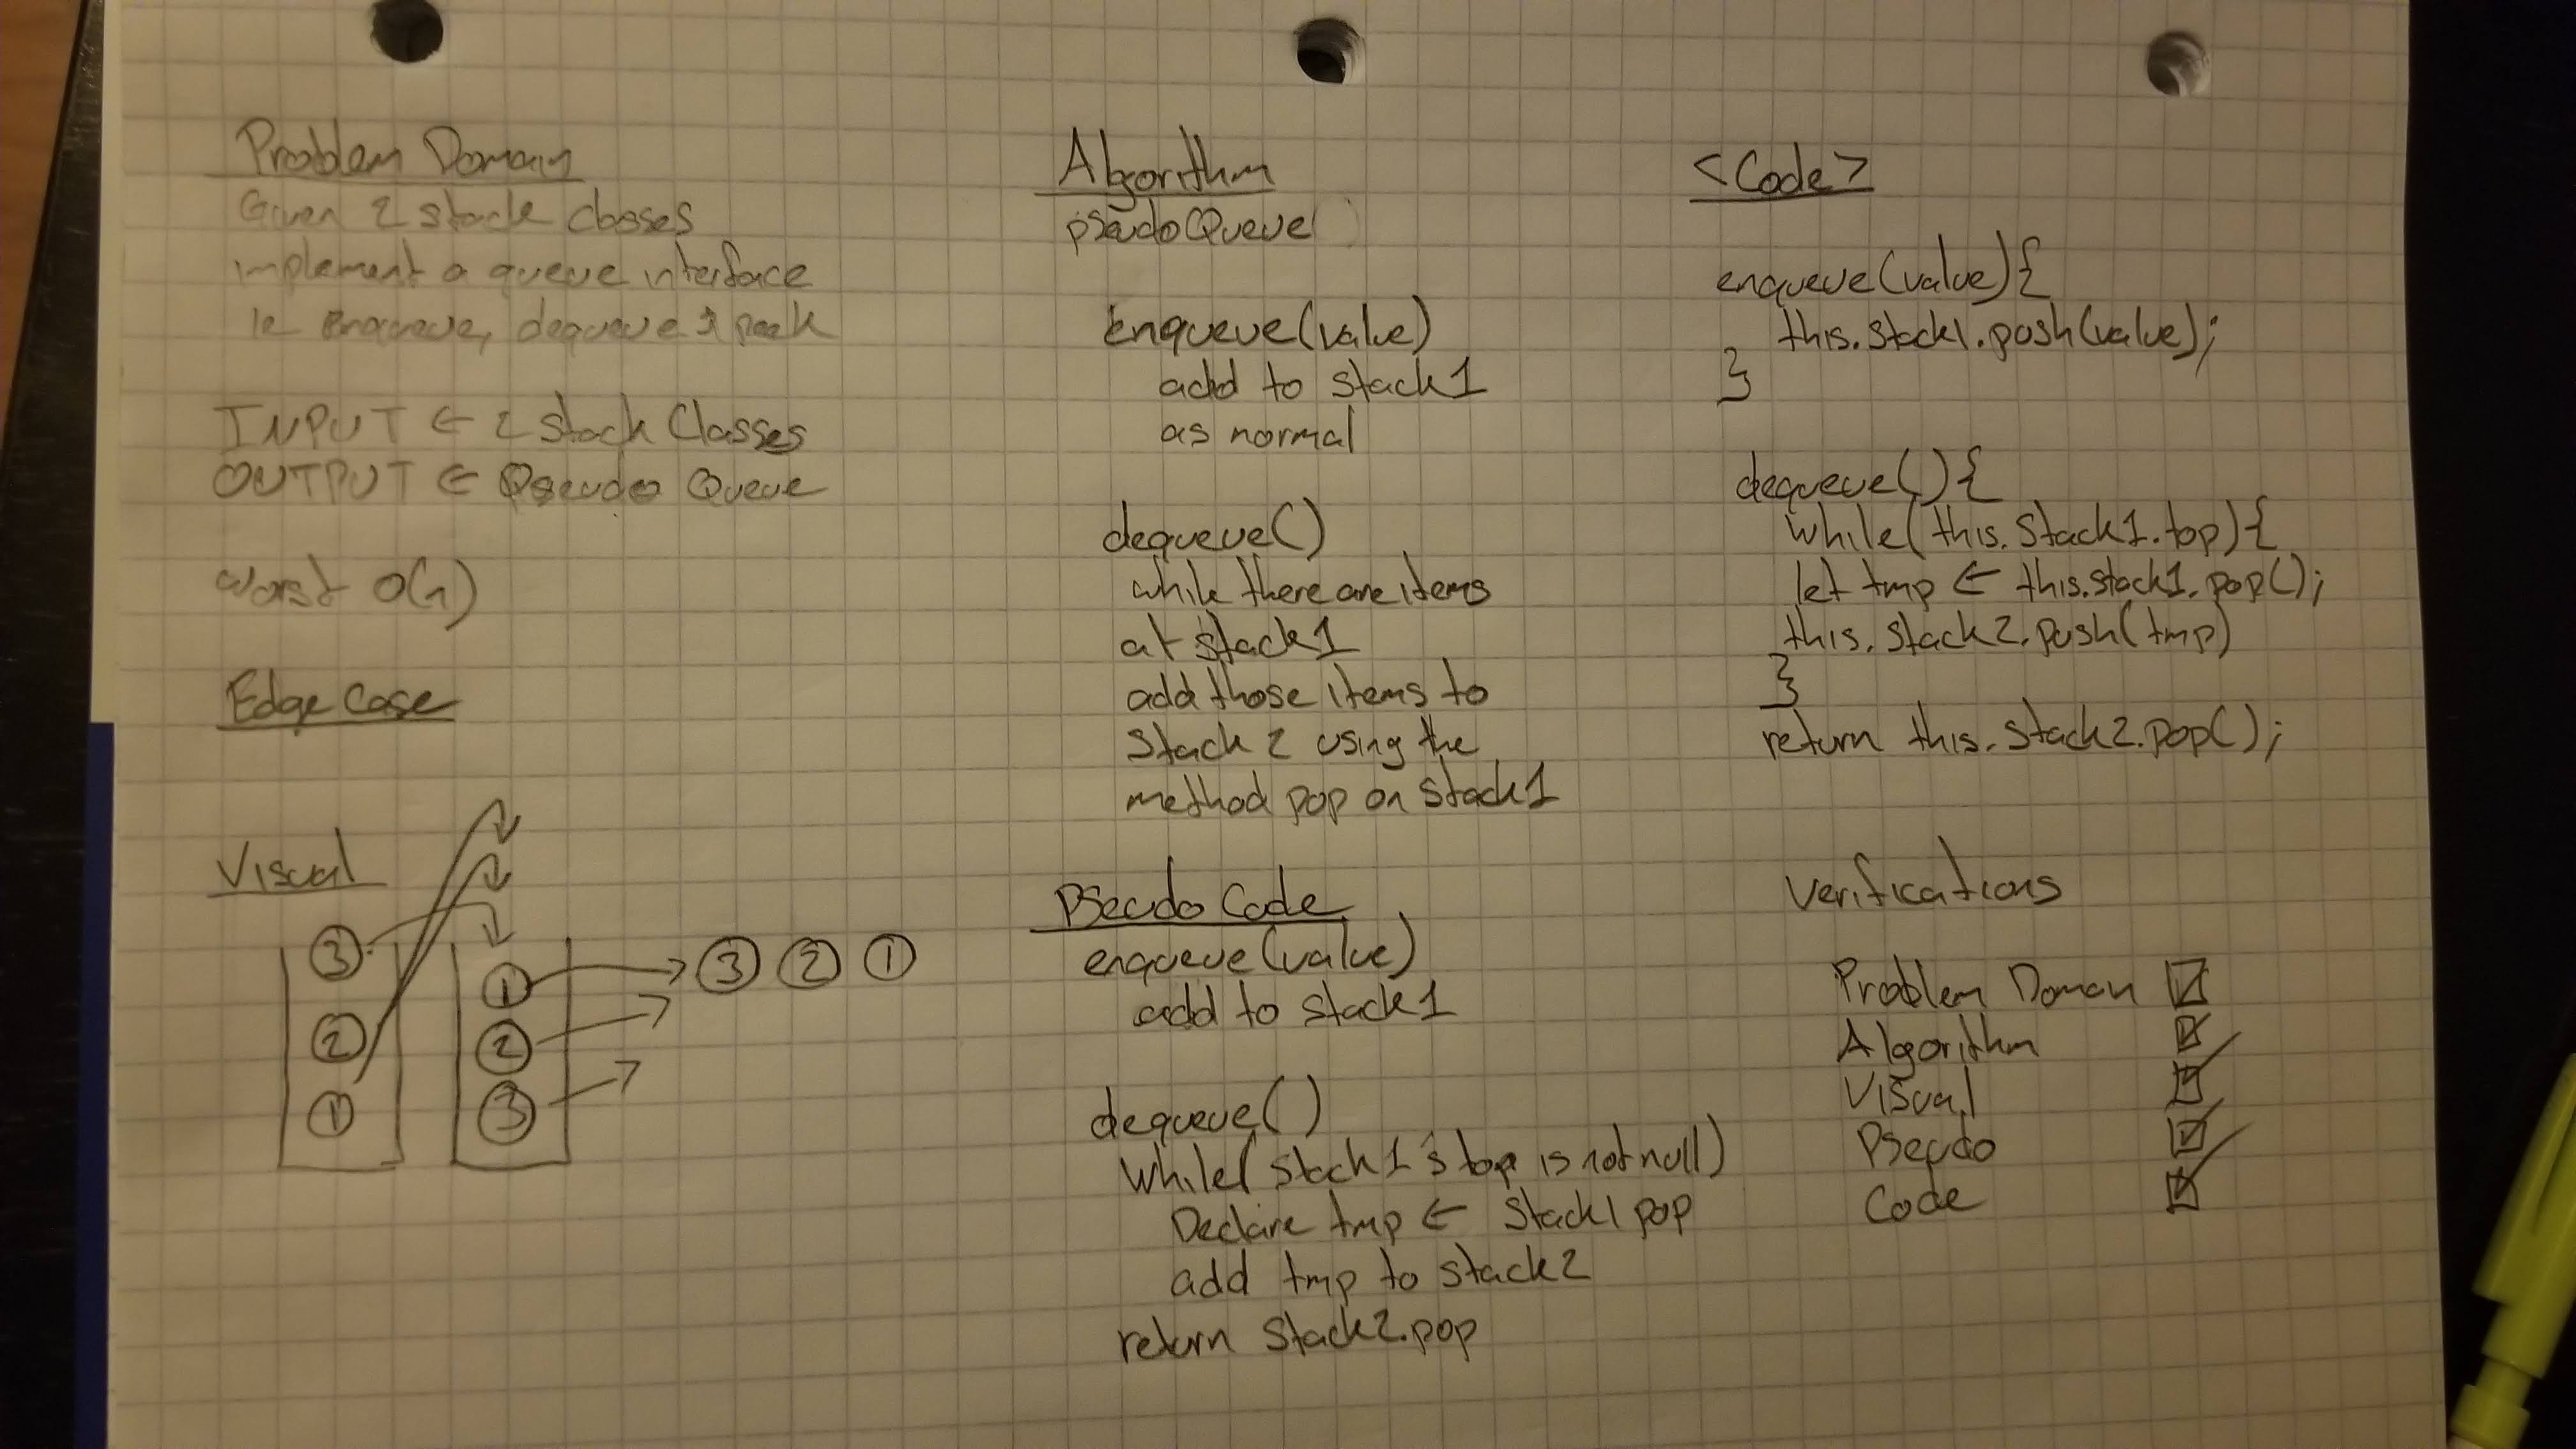 Problem Domain
Given 2 stack classes
implement a queue interface
ie enqueue, dequeue & peek
INPUT ← 2 stack Classes
OUTPUT ← Pseudo Queue
worst O(n)
Edge Case
Visual
3
2
1
1
2
3
3 2 1
Algorithm
pseudoQueue
enqueue(value)
add to stack1
as normal
dequeue()
while there are items
at stack1
add those items to
Stack 2 using the
method pop on stack1
Pseudo Code
enqueue(value)
add to stack1
dequeue()
While(stack1's top is not null)
Declare tmp ← Stack1 pop
add tmp to stack2
return Stack2.pop
<Code>
enqueue(value){
this.stack1.push(value);
}
dequeue(){
while(this.Stack1.top){
let tmp ← this.stack1.pop();
this.stack2.push(tmp)
}
return this.stack2.pop();
Verifications
Problem Doman
Algorithm
Visual
Pseudo
Code